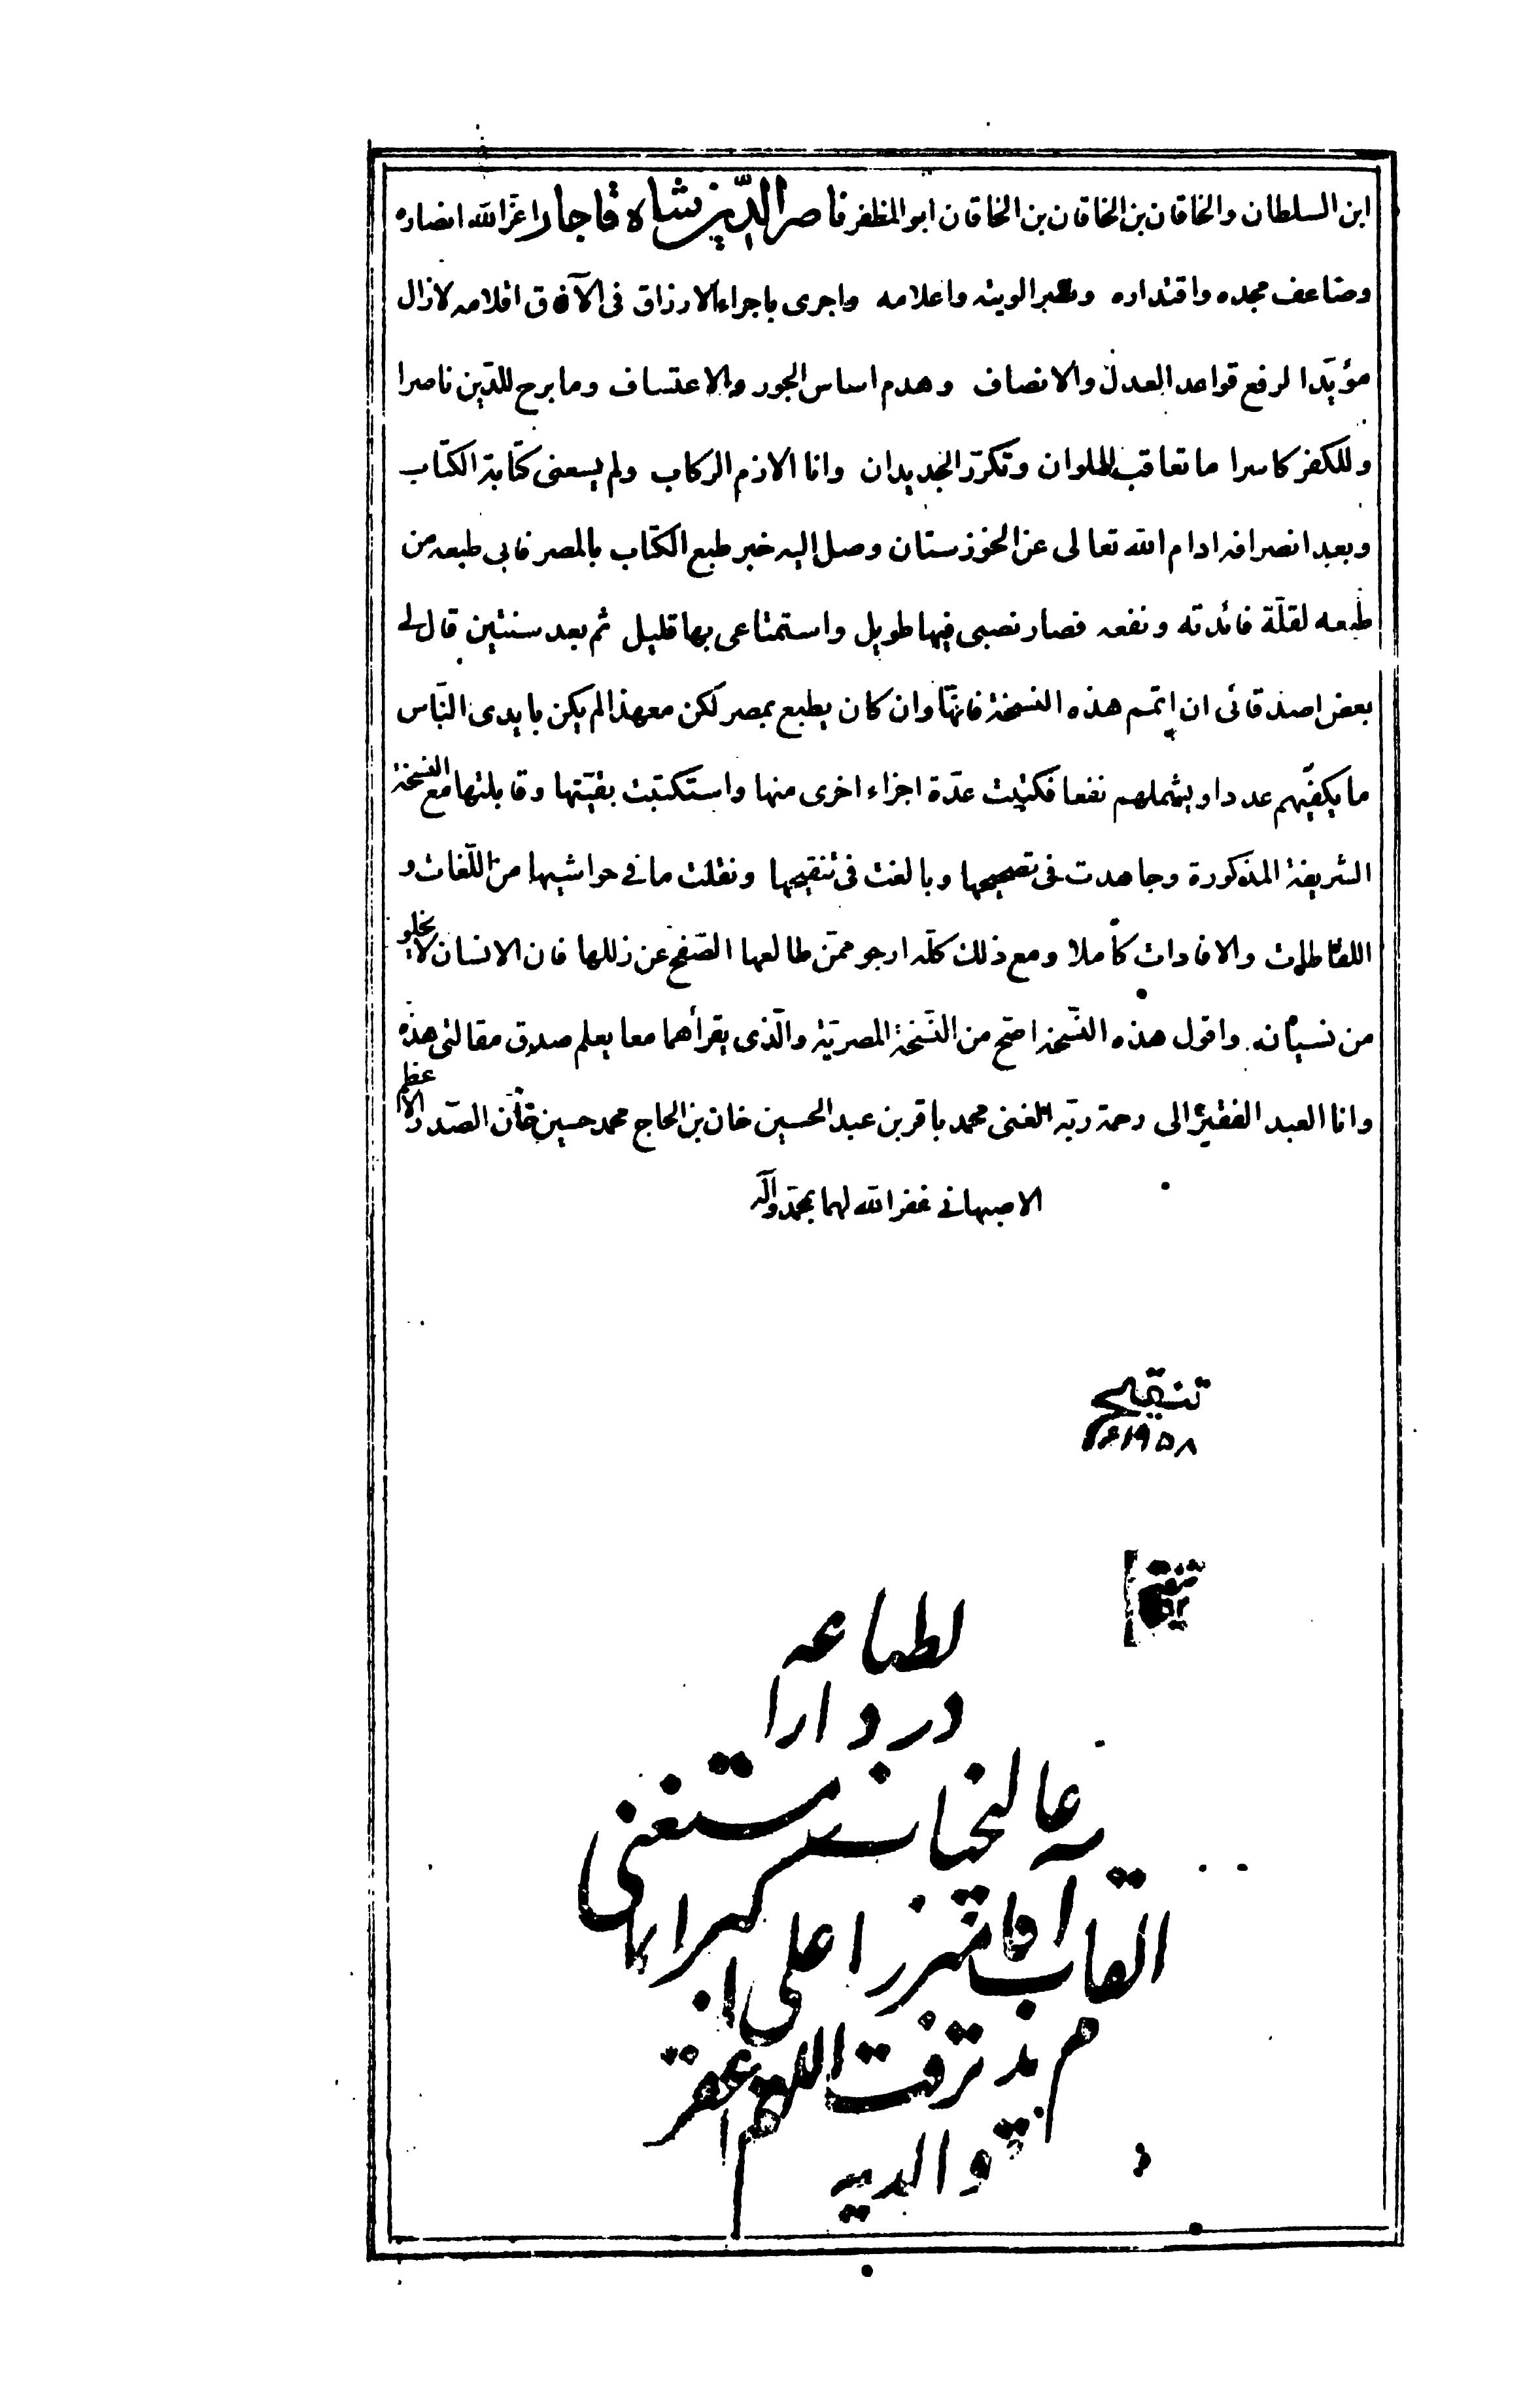 ابن السلطان والخاقان بن الخاقان بن الخاقان ابو المظفر ناصر الدّين شاه قاجار اعزّ الله انصاره
وضاعف مجده واقتداره ونصر الويته واعلامه واجرى باجراء الارزاق فى الآفاق اقلامه لازال
مؤيّدا لرفع قواعد العدل والانصاف وهدم اساس الجور والاعتساف وما برح للدّين ناصرا
وللكفر كاسرا ما تعاقب الملوان وتكرّر الجديدان وانا الازم الركاب ولم يسعنى كتابة الكتاب
وبعد انصرافه ادام الله تعالى عن الخوزستان وصل اليه خبر طبع الكتاب بالمصر فابى طبعه من
طبعه لقلّة فائدته ونفعه فصار نصبى فيها طويل واستمتاعى بها قليل ثم بعد سنتين قال لى
بعض اصدقائى ان اتمّم هذه النسخة فانّها وان كان يطبع بمصر لكن معهذا لم يكن بايدى النّاس
ما يكفيّهم عددا ويشملهم نفعا فكتبت عدّة اجزاء اخرى منها واستكتبت بقيّتها وقابلتها مع النسخة
الشريفة المذكورة وجاهدت فى تصحيحها وبالغت فى تنقيحها ونقلت ما فى حواشيها من اللّغات و
والافادات كاملا ومع ذلك كلّه ارجو ممّن طالعها الصّفح عن زللها فان الانسان لا يخلو
من نسيانه واقول هذه النّسخه اصّح من النّسخة المصريّة والّذى يقرأهما معا يعلم صدق مقالتى هذه
وانا العبد الفقير الى رحمة ربّه الغنى محمد باقر بن عبد الحسين خان بن الحاج محمد حسين خان الصّدر الاعظم
الاصبهانى غفر الله لهما بمحمّد وآله
تنقيح
۱۹۵۸ء
لطباعه
در دار ا
عاليخان مستغنى
القاب آقا ميرزا على اكبر
والديه